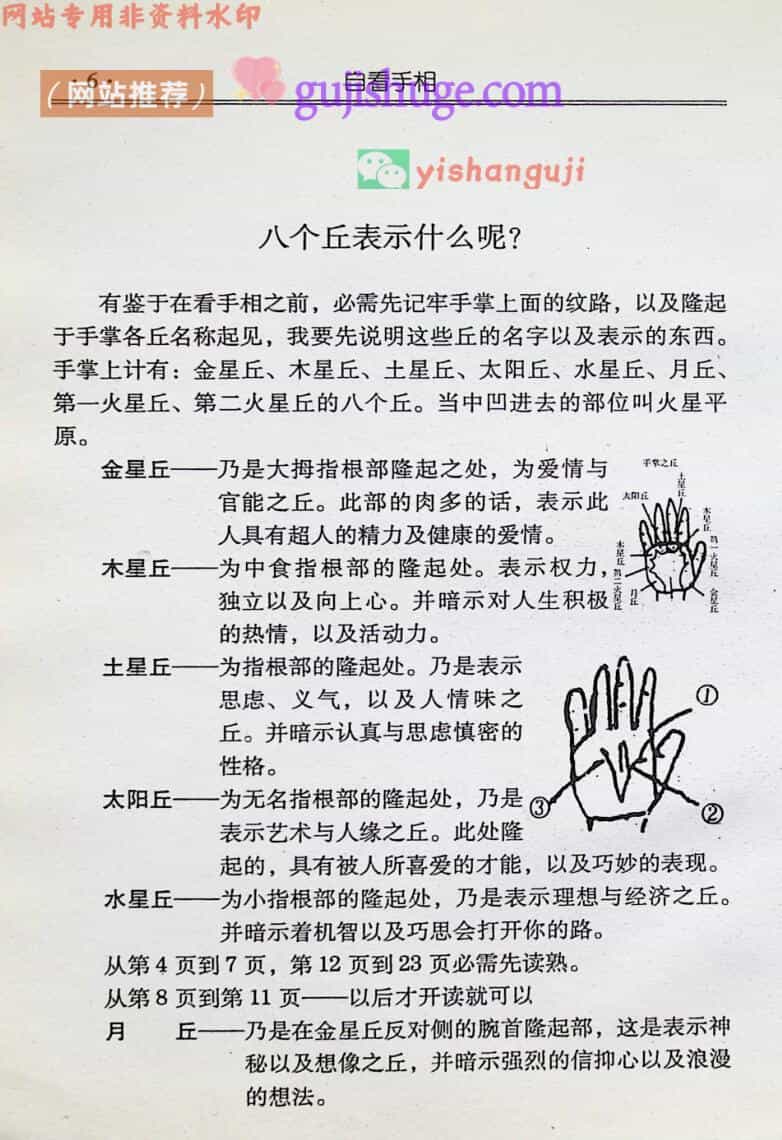 网站专用非资料水印
·6·
自看手相
（网站推荐）
gujishuge.com
yishanguji
八个丘表示什么呢？
有鉴于在看手相之前，必需先记牢手掌上面的纹路，以及隆起
于手掌各丘名称起见，我要先说明这些丘的名字以及表示的东西。
手掌上计有：金星丘、木星丘、土星丘、太阳丘、水星丘、月丘、
第一火星丘、第二火星丘的八个丘。当中凹进去的部位叫火星平
原。
金星丘——乃是大拇指根部隆起之处，为爱情与
官能之丘。此部的肉多的话，表示此
人具有超人的精力及健康的爱情。
木星丘——为中食指根部的隆起处。表示权力，
独立以及向上心。并暗示对人生积极
的热情，以及活动力。
土星丘——为指根部的隆起处。乃是表示
思虑、义气，以及人情味之
丘。并暗示认真与思虑慎密的
性格。
太阳丘——为无名指根部的隆起处，乃是
表示艺术与人缘之丘。此处隆
起的，具有被人所喜爱的才能，以及巧妙的表现。
水星丘——为小指根部的隆起处，乃是表示理想与经济之丘。
并暗示着机智以及巧思会打开你的路。
从第 4 页到 7 页，第 12 页到 23 页必需先读熟。
从第 8 页到第 11 页——以后才开读就可以
月　　丘——乃是在金星丘反对侧的腕首隆起部，这是表示神
秘以及想像之丘，并暗示强烈的信抑心以及浪漫
的想法。
手掌之丘
土星丘
太阳丘
木星丘
第一火星丘
金星丘
木星丘
第二火星丘
月丘
①
②
③